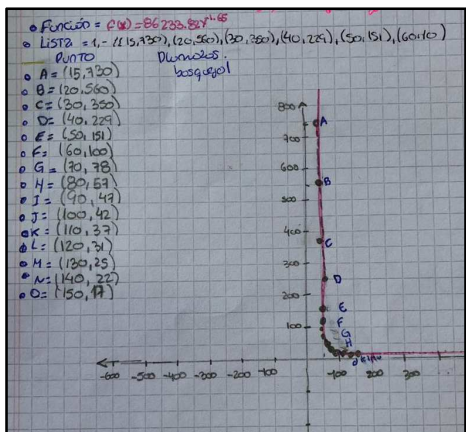 • Función = f(x) = 86233.82x^-1.65
• Lista = 1, - {(15,730), (20,560), (30,350), (40,229), (50,151), (60,10)
Punto
bosquejo1
• A = (15,730)
• B = (20,560)
• C = (30,350)
• D = (40,229)
• E = (50,151)
• F = (60,100)
• G = (70,78)
• H = (80,57)
• I = (90,47)
• J = (100,42)
• K = (110,37)
• L = (120,31)
• M = (130,25)
• N = (140,22)
• O = (150,17)
800
A
700
600
B
500
400
C
300
D
200
E
100
F
G
H
-600 -500 -400 -300 -200 -100 100 200 300